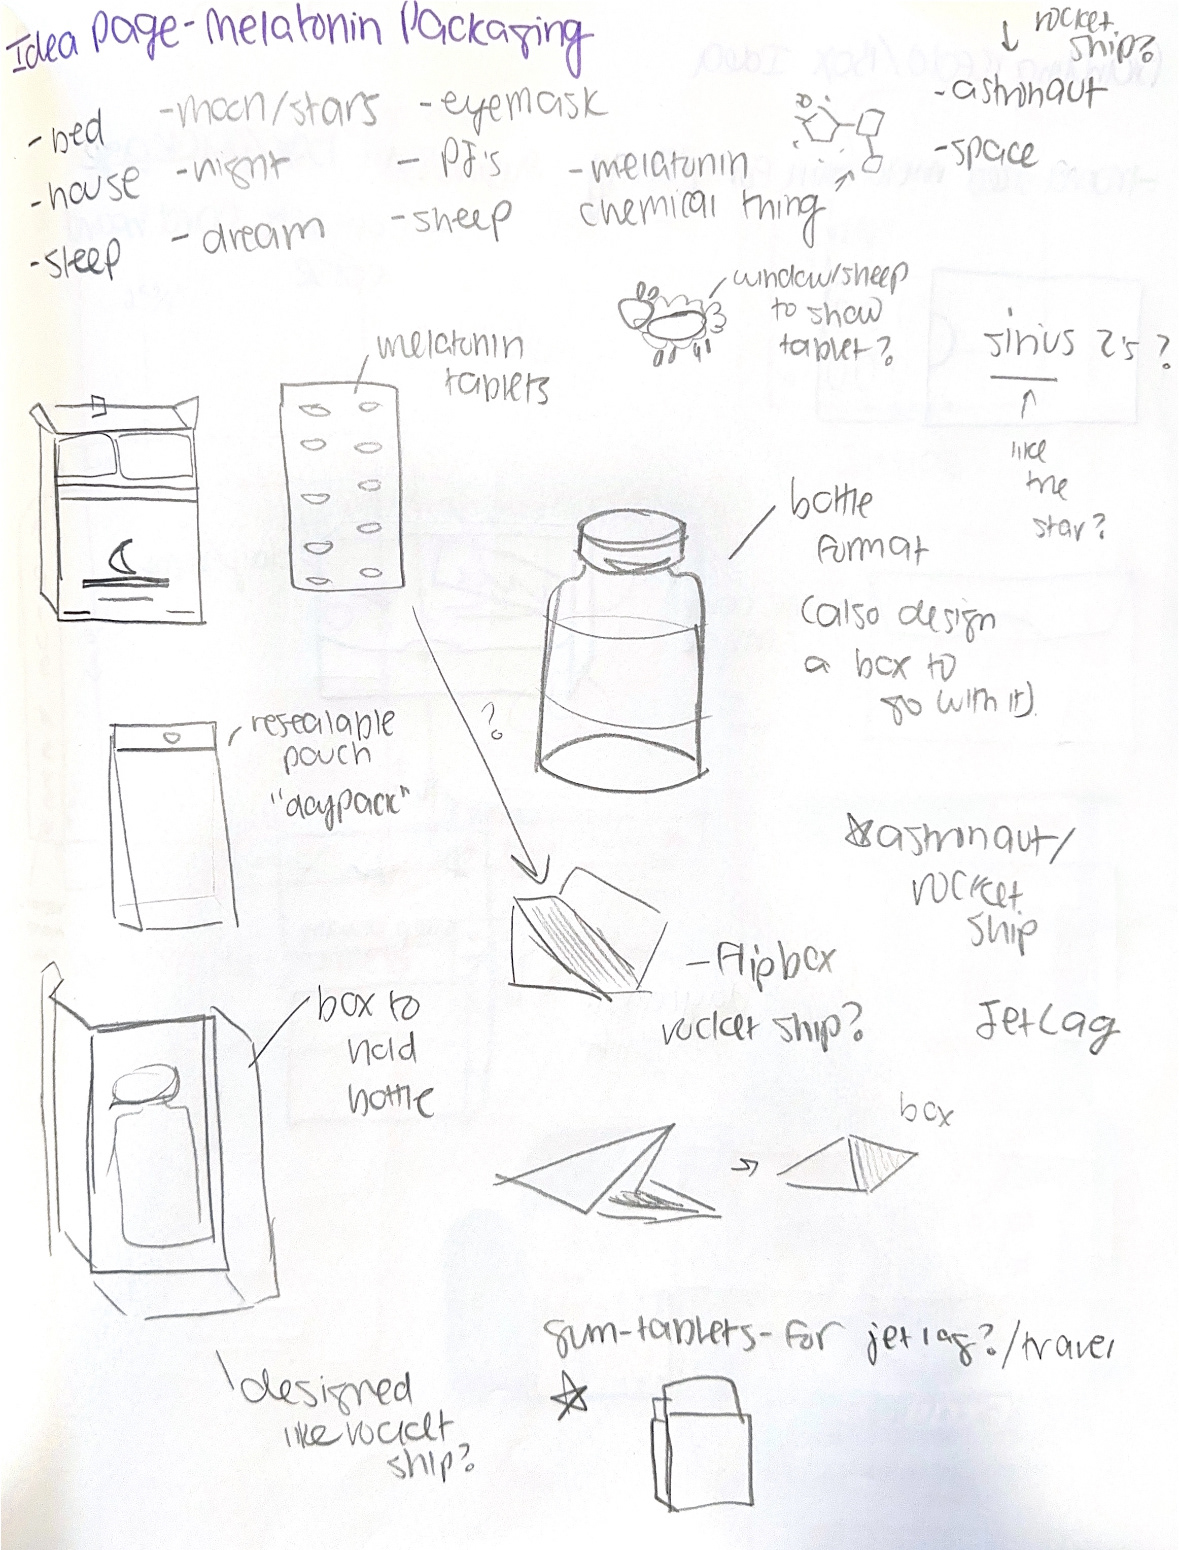 Idea Page - Melatonin Packaging
rocket
ship?
- bed
- house
- sleep
- moon/stars
- night
- dream
- eyemask
- PJ's
- sheep
- melatonin
chemical thing
- astronaut
- space
window/sheep
to show
tablet?
sirius Z's?
like
the
star?
melatonin
tablets
bottle
format
(also design
a box to
go with it)
?
resealable
pouch
astronaut/
rocket
ship
- Flipbox
rocket ship?
Jetlag
box to
hold
bottle
box
gum-tablets-for jet lag?/travel
designed
like rocket
ship?